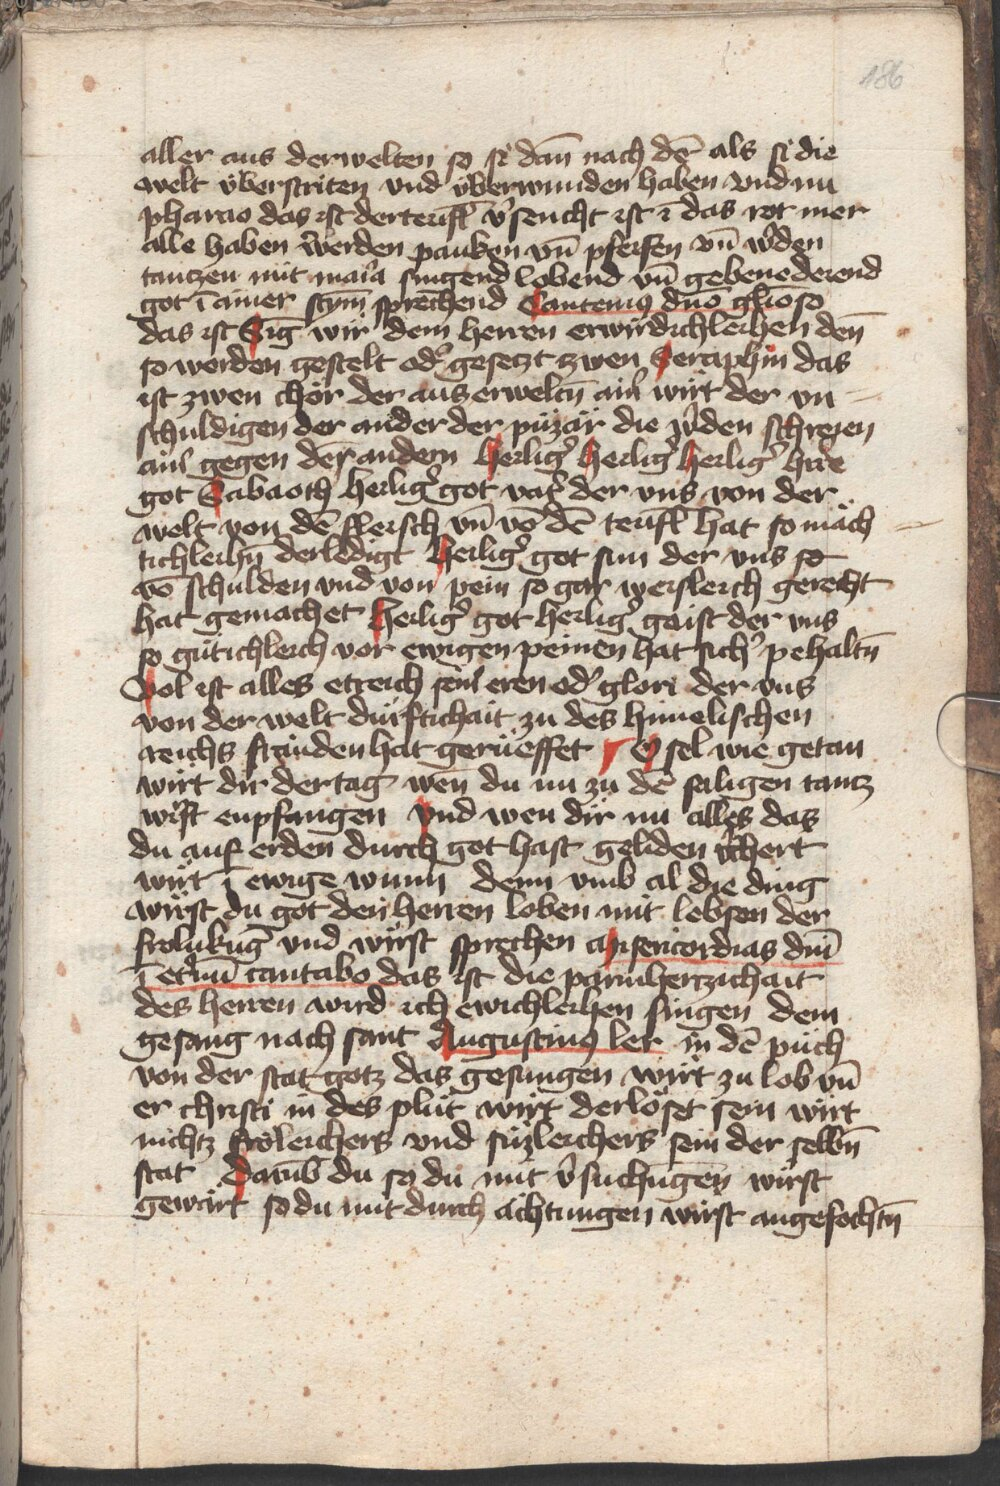 186
aller aus derwelten so si dan̄ nach dē als si die
welt v̈berstriten vnd v̈berwunden haben vnd nu
pharao das ist derteufl̄ v̓sencht ist ī das rot mer
alle haben w̓erden pauken vn̄ pfeifen vn̄ w̓den
tantzen mit maria singend lobend vn̄ gebenedeiend
got ī ainer stym sprechend Cantemus dn̄o gl̄ioso
das ist Sīg wir dem herren erwirdichleichen den̄
so worden gestelt od̓ gesetzt zwen Seraphin das
ist zwen chör der auserweltn̄ ain̓ wirt der vn
schuldigen der ander der püzär die w̓den schreien
ain̓ gegen dem̄ andern heilig̓ heilig̓ heilig̓ h̓re
got Sabaoth heilig̓ got vat̓ der vns von der
welt von dē fleisch vn̄ vō dē teufl̄ hat so mäch
tichleichn̄ derledigt heilig̓ got sun der vns so
vō schulden vnd von pein so gar weisleich gerecht
hat gemachet heilig̓ got heilig̓ gaist der vns
so gütichleich vor ewigen peinen hat sich̓ pehaltn̄
Vol ist alles etreich sein̓ eren od̓ glori der vns
von der welt dürftichait zu des himelischen
reichs fräuden hat gerüeffet O sel wie getan
wirt dir der tag wen̄ du nu zu dē saligen tantz
wirst enpfangen vnd wen dir nu alles das
du auf erden durch got hast geliden v̓chert
wirt ī ewige wunn denn vmb al die ding
wirst du got den herren loben mit lebsen der
frolukūg vnd wirst sprechen Misericordias dn̄i
ī et̓nū cantabo das ist die parmherzichait
des herren wird ich ewichleichen singen dem
gesang nach sant Augustinus ler in dē püch
von der stat gotz das gesungen wirt zu lob vn̄
er christi in des plut wirt derlöset sein wirt
nichtz fröleichers vnd süzleichers sein der selbn̄
stat Darūb du so du mit v̓suchūgen wirst
gewärt so du mit durch ächtungen wirst angefochtn̄